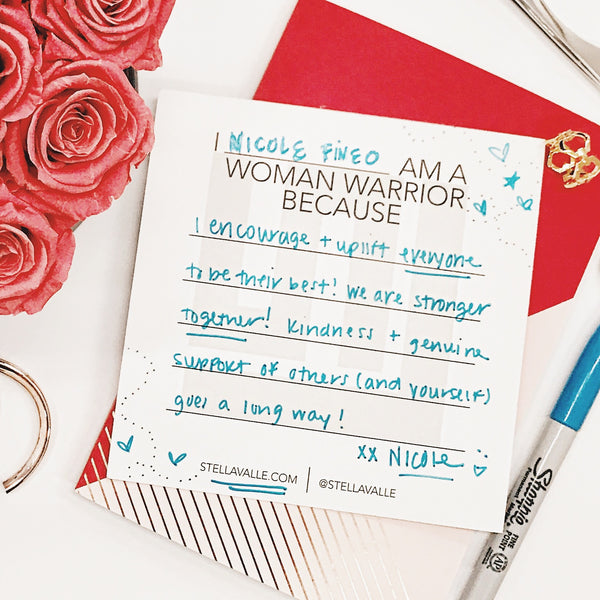 I NICOLE FINEO AM A
WOMAN WARRIOR
BECAUSE
I encourage + uplift everyone
to be their best! We are stronger
together! Kindness + genuine
support of others (and yourself)
goes a long way!
xx Nicole
STELLAVALLE.COM | @STELLAVALLE
Sharpie
FINE
POINT
AP